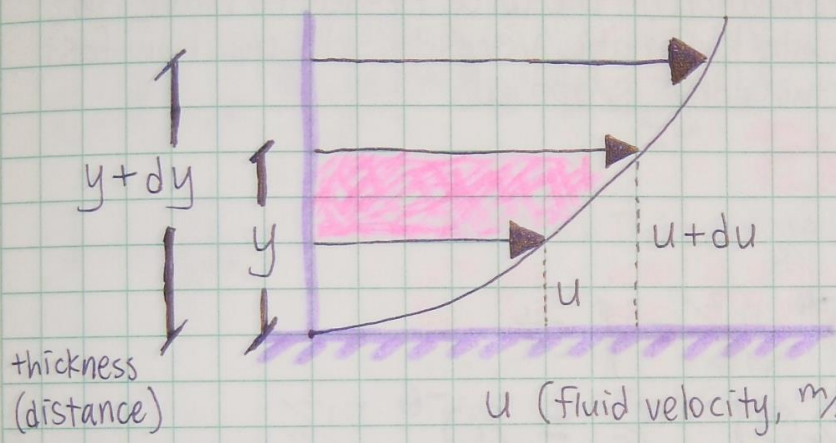 y+dy
y
u+du
u
thickness
(distance)
u (fluid velocity, m/